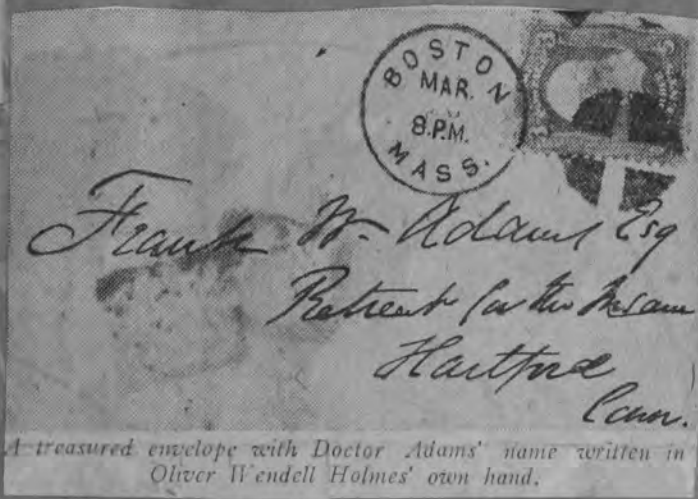 BOSTON
MAR.
8.P.M.
MASS.
Frank W. Adams Esq
Retreat for the Insane
Hartford
Conn.
A treasured envelope with Doctor Adams' name written in
Oliver Wendell Holmes' own hand.